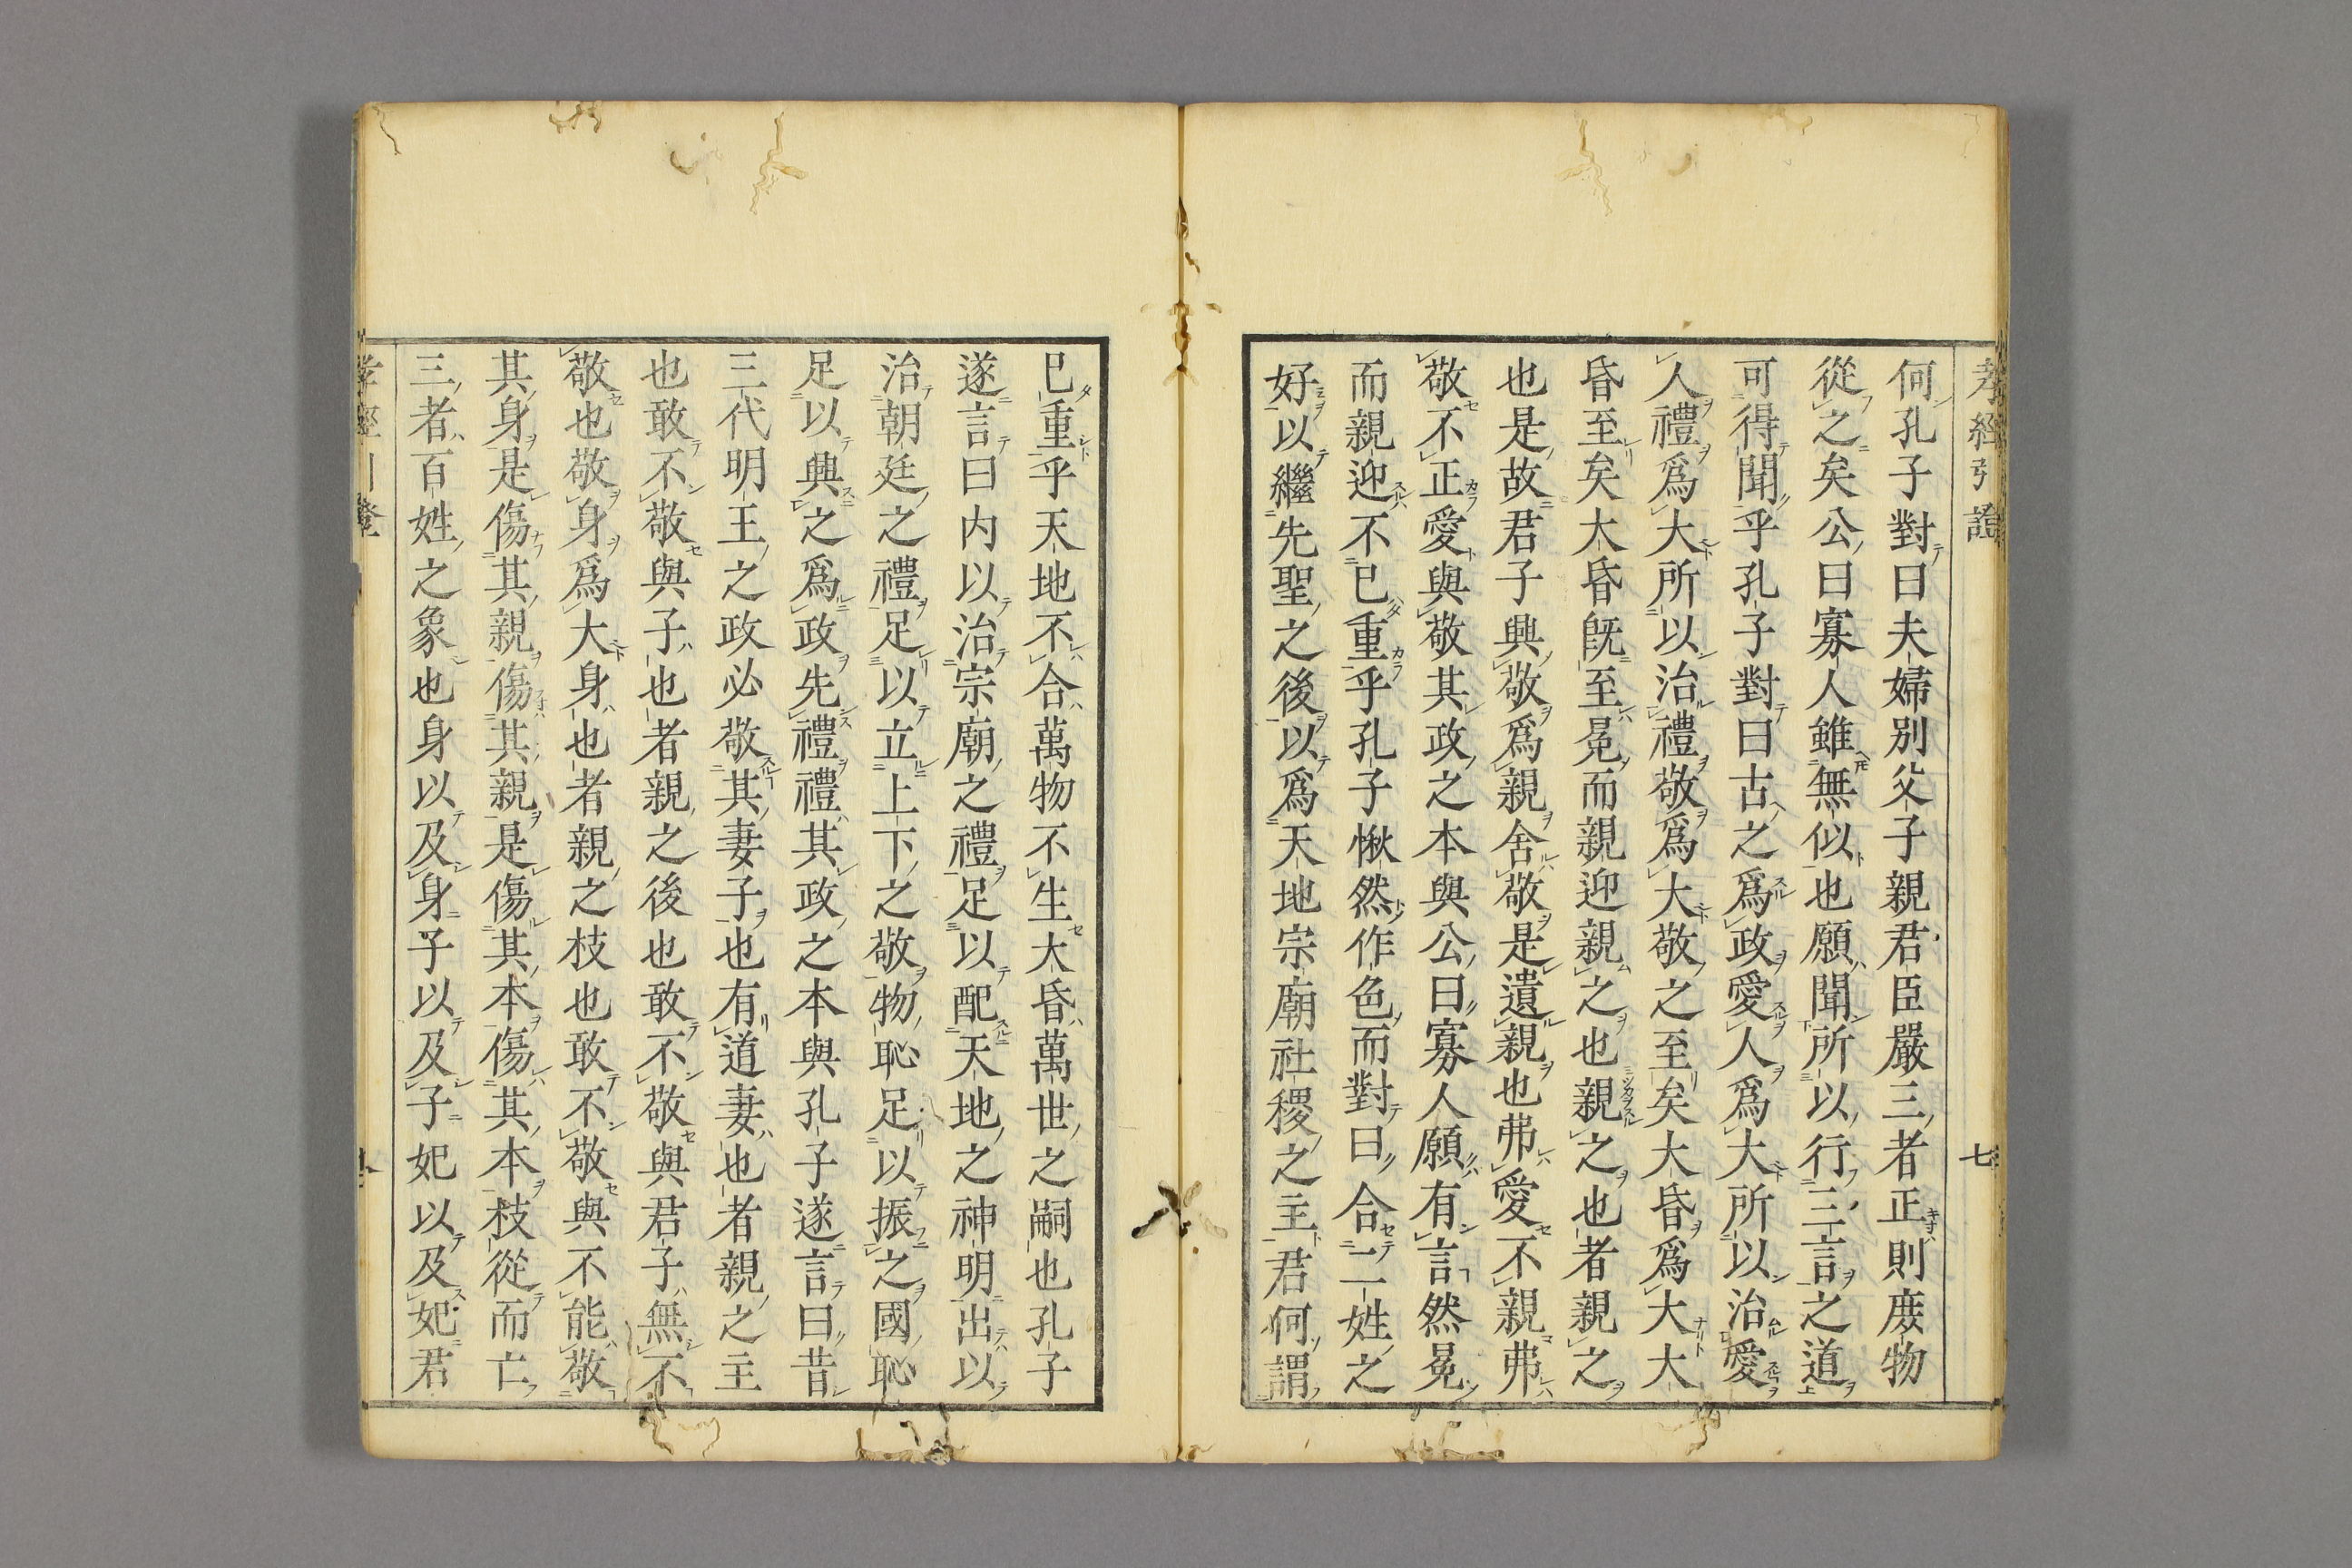 孝經引證 七
何孔子對曰夫婦別父子親君臣嚴三者正則庻物
從之矣公曰寡人雖無似也願聞所以行三言之道
可得聞乎孔子對曰古之爲政愛人爲大所以治愛
人禮爲大所以治禮敬爲大敬之至矣大昏爲大大
昏至矣大昏旣至冕而親迎親之也親之也者親之
也是故君子興敬爲親舍敬是遺親也弗愛不親弗
敬不正愛與敬其政之本與公曰寡人願有言然冕
而親迎不已重乎孔子愀然作色而對曰合二姓之
好以繼先聖之後以爲天地宗廟社稷之主君何謂
已重乎天地不合萬物不生大昏萬世之嗣也孔子
遂言曰内以治宗廟之禮足以配天地之神明出以
治朝廷之禮足以立上下之敬物恥足以振之國恥
足以興之爲政先禮禮其政之本與孔子遂言曰昔
三代明王之政必敬其妻子也有道妻也者親之主
也敢不敬與子也者親之後也敢不敬與君子無不
敬也敬身爲大身也者親之枝也敢不敬與不能敬
其身是傷其親傷其親是傷其本傷其本枝從而亡
三者百姓之象也身以及身子以及子妃以及妃君